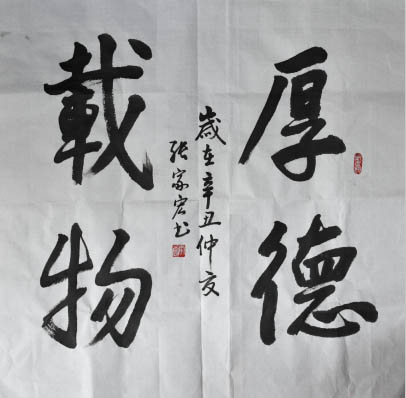 厚德
載物
歲在辛丑仲夏
张家宏书